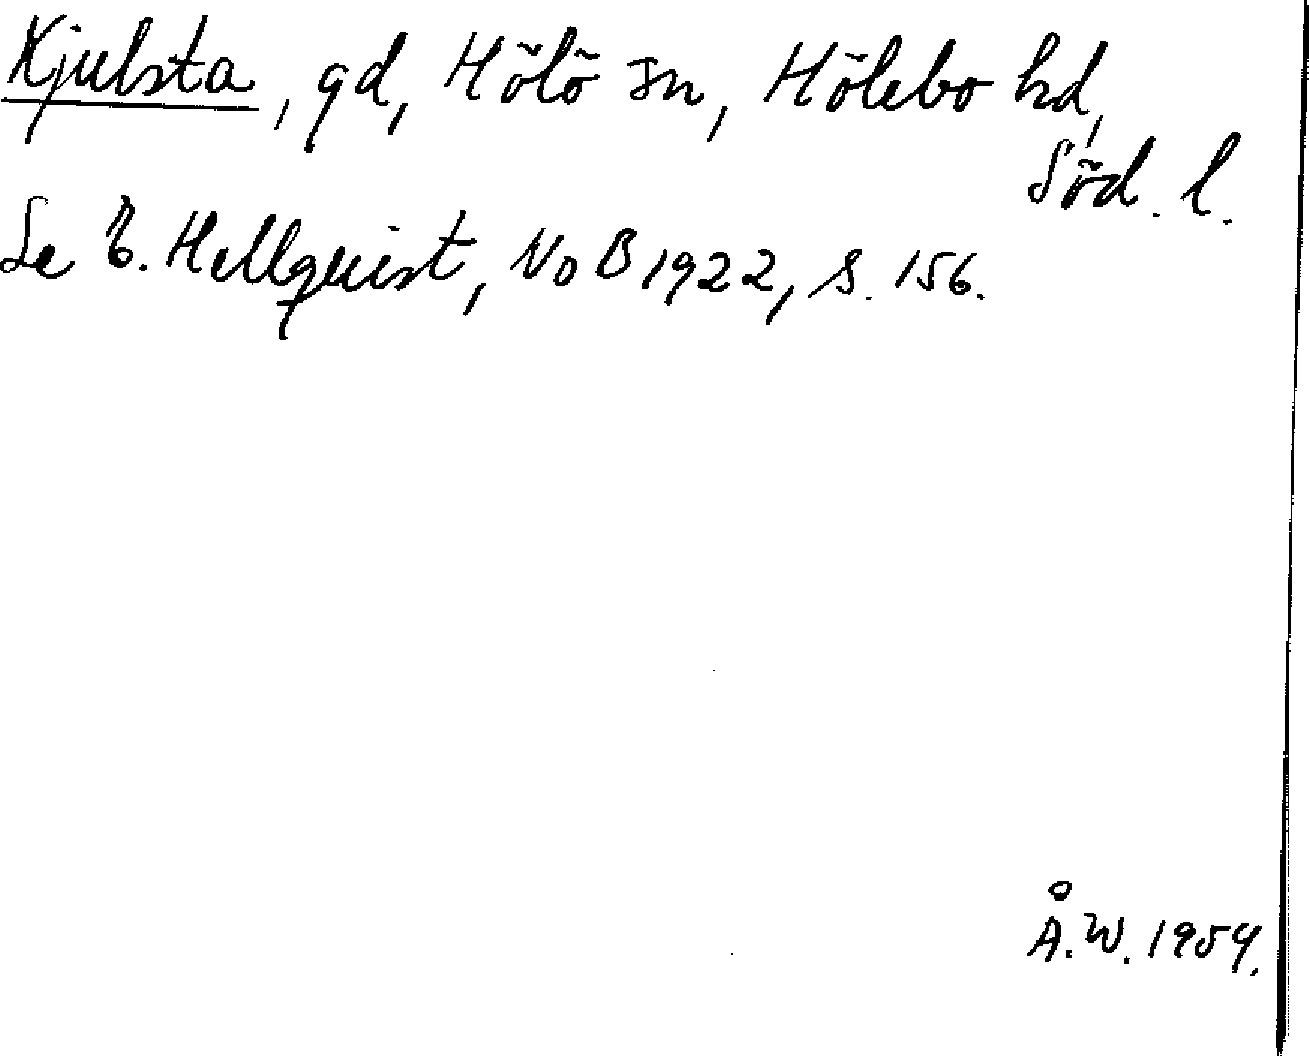 Kjulsta, gd, Hölö sn, Hölebo hd,
Söd. l.
Se E. Hellquist, NoB 1922, s. 156.
Å.W. 1954.